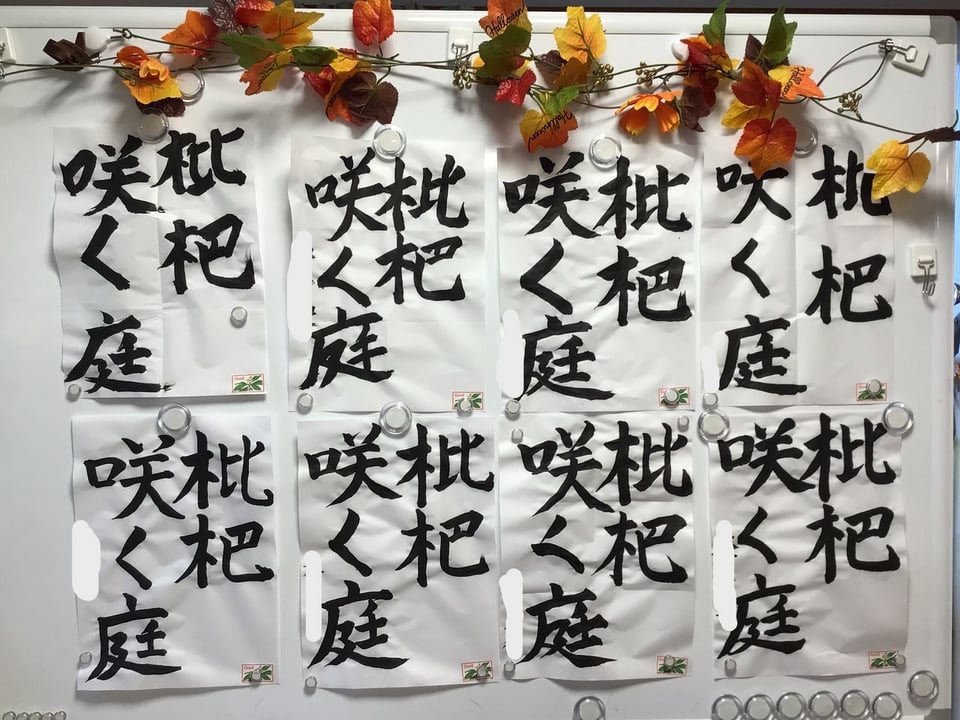 Halloween
Halloween
枇杷
咲く庭
枇杷
咲く庭
枇杷
咲く庭
枇杷
咲く庭
枇杷
咲く庭
枇杷
咲く庭
枇杷
咲く庭
枇杷
咲く庭